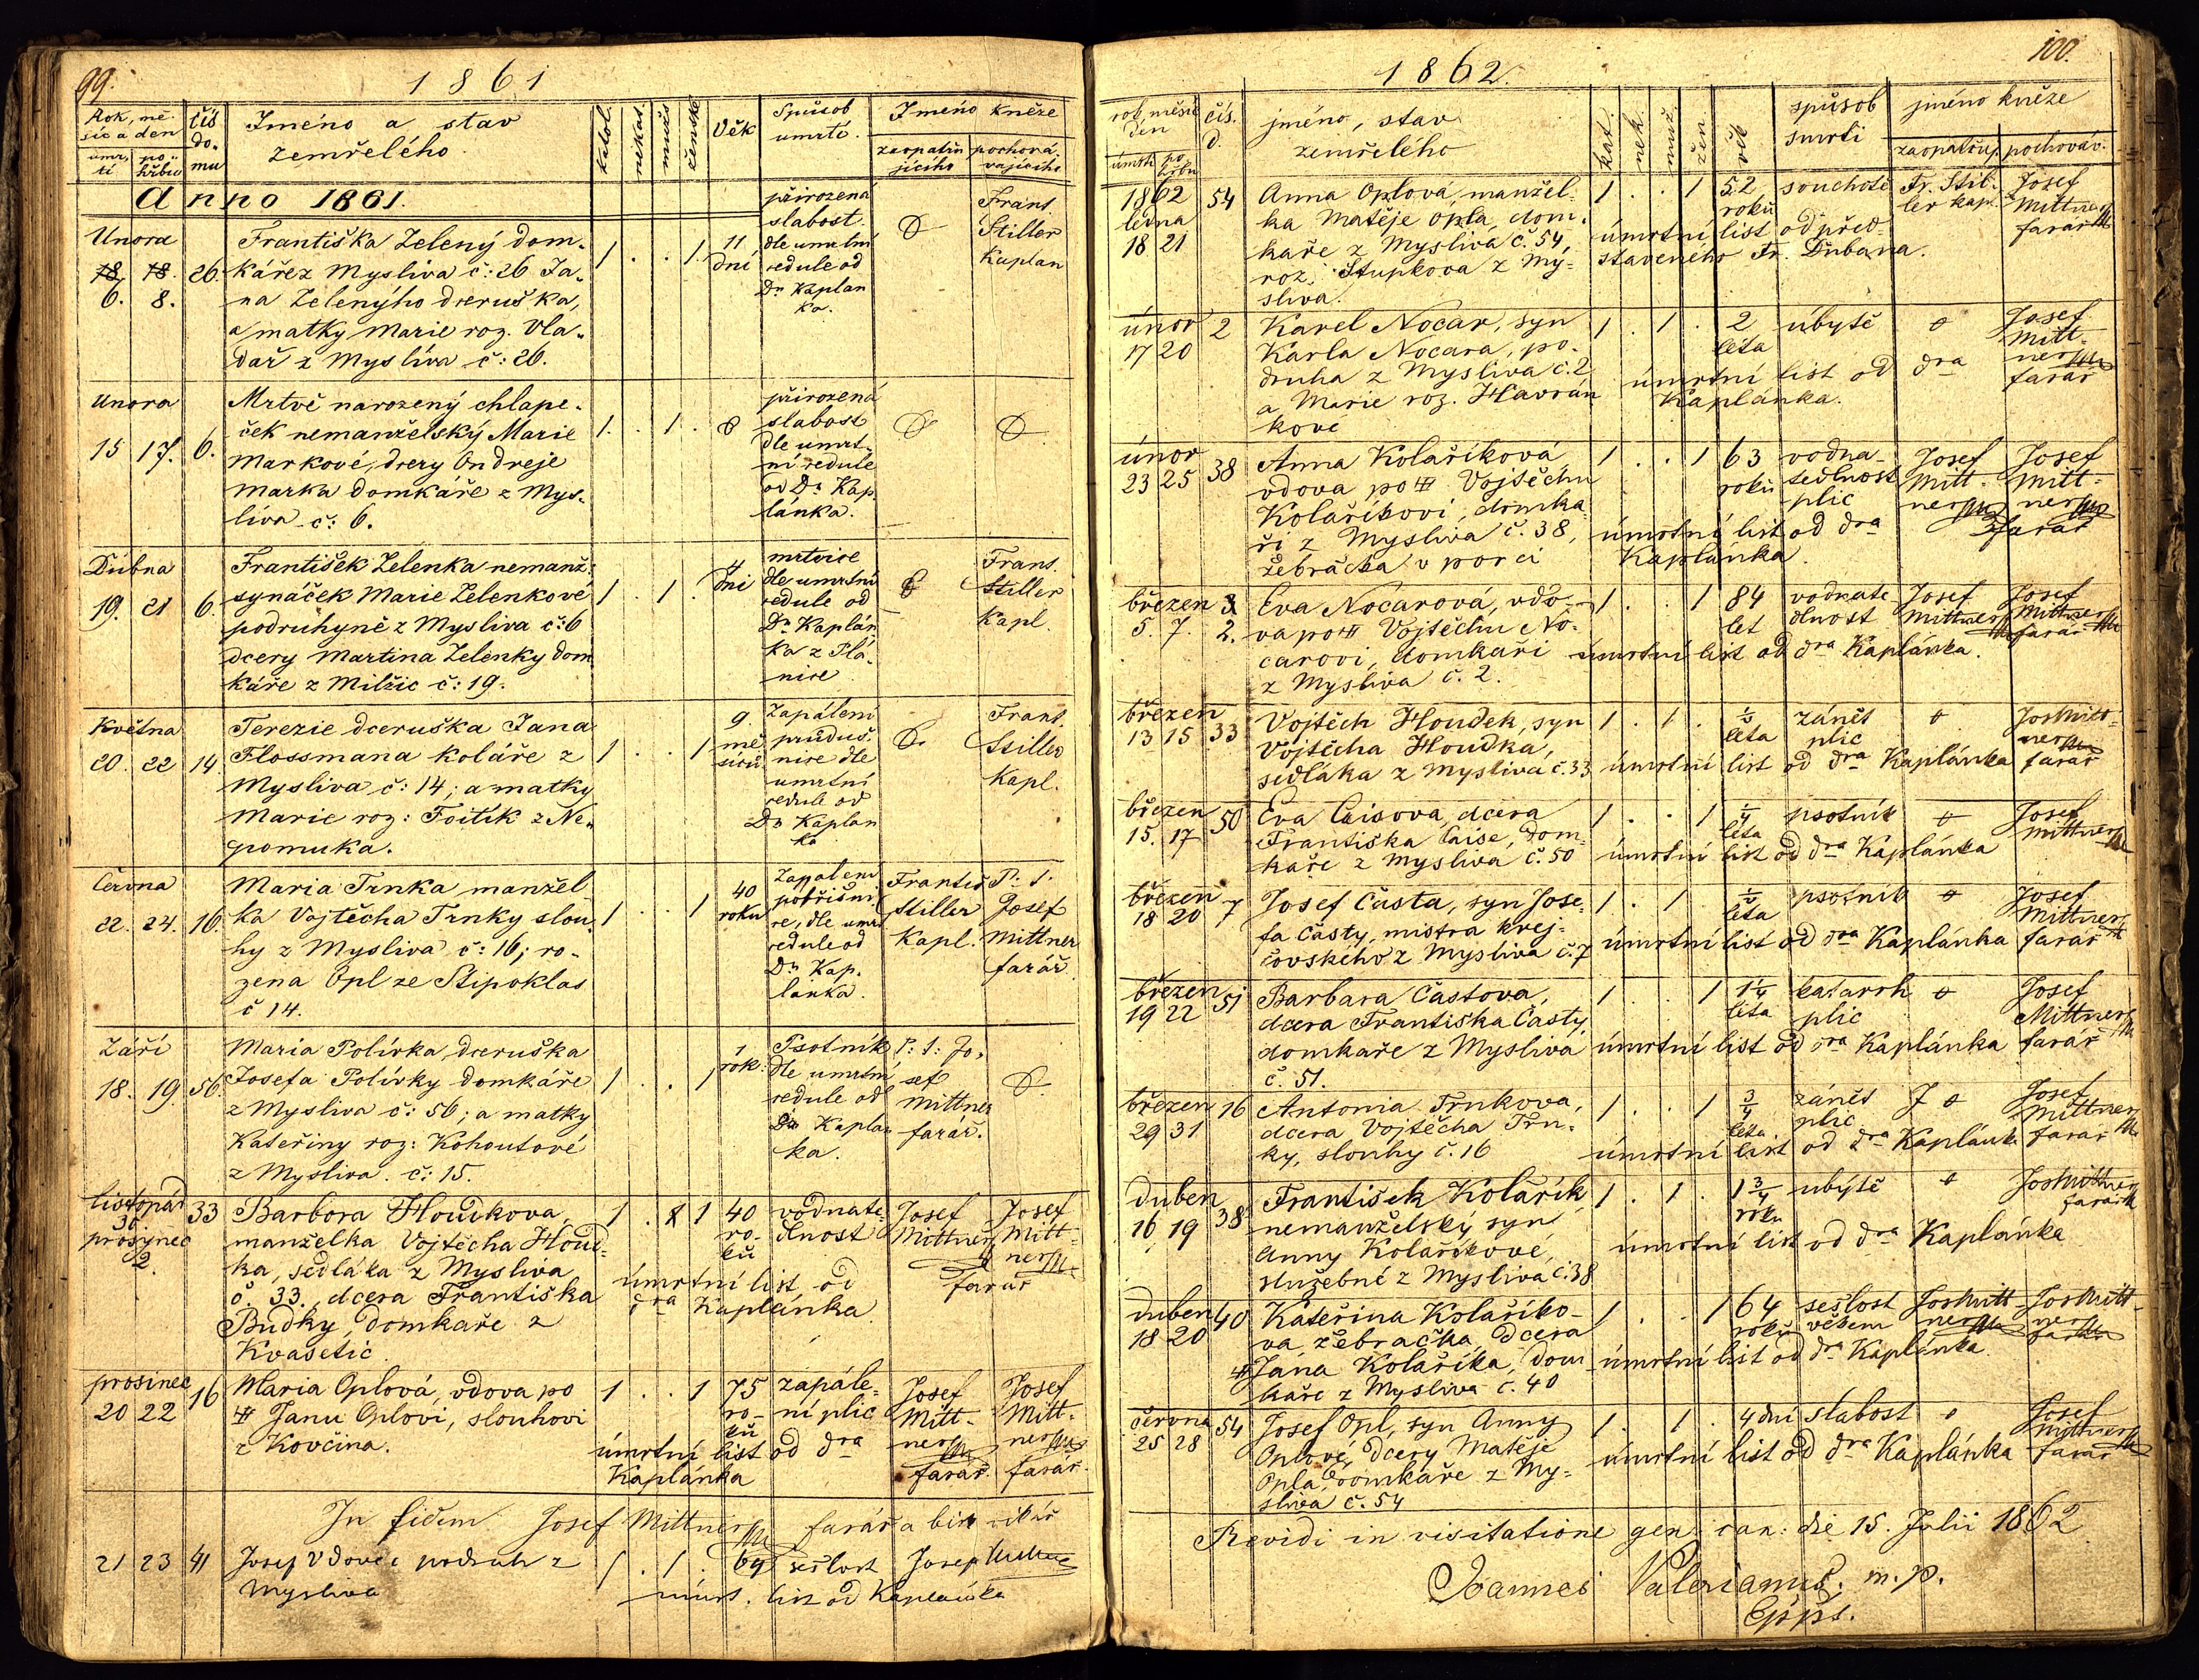 99.
1861
Rok, mě-
síc a den
čís
do-
mu
Jméno a stav
zemřelého
katol.
nekat.
muže
ženské
Věk
Spůsob
umrtí.
Jmeńo kněze
umr-
tí
po-
hřbu
zaopatřu
jícího
pochová-
vajícího
Anno 1861.
Unora
18. 18.
6. 8.
26.
Františka Zelený dom-
káře z Mysliva č: 26 Ja-
na Zelenýho dceruška,
a matky Marie roz. Vla-
dař z Myslíva č: 26.
1 . . 1.
11
dní
přirozená
slabost.
dle umrtní
cedule od
Dr Kaplan
ka.
Frant.
Stiller
Kaplan
Unora
15 17. 6.
Mrtvě narozený chlape-
ček nemanželský Marie
Markové, dcery Ondreje
Marka domkáře z Mys-
líva č: 6.
1. . 1 .
přirozená
slabost
dle umrt-
ní cedule
od Dr Kap
lanka.
Dubna
19. 21 6.
František Zelenka nemanž:
synáček Marie Zelenkové
podruhyně z Mysliva č: 6
dcery Martina Zelenky dom
káře z Milčic č: 19.
1 . 1 .
4
dní
mrtvice
dle umrtní
cedule od
Dr Kaplán
ka z Plá-
nice
Frant.
Stiller
Kapl.
Května
20. 22 14.
Terezie dceruška Jana
Flossmana koláře z
Mysliva č: 14; a matky
Marie roz: Foitík z Ne-
pomuka.
1 . . 1
9.
mě
síců
Zapálení
průduš-
nice dle
umrtní
cedule od
Dr Kaplan
ka
Frant.
Stiller
Kapl.
Června
22. 24. 16.
Maria Trnka manžel
ka Vojtěcha Trnky slou-
hy z Mysliva č: 16; ro-
zena Opl ze Štipoklas
č 14.
1 . . 1
40
roků
Zappalení
pobřišni
ce, dle umr.
cedule od
Dr Kap-
lánka.
Františ
Stiller
Kapl.
P. T.
Josef
Mittner
farář
Září
18. 19. 56.
Maria Polívka, dceruška
Josefa Polívky domkáře
z Mysliva č: 56; a matky
Kateřiny roz: Kohoutové
z Mysliva. č: 15.
1 . . 1
1
rok.
Psotník
dle umrtní
cedule od
Dr Kaplan
ka.
P: T: Jo-
sef
Mittner
farář.
listopád
30
prosynec
2.
33
Barbora Houdkova,
manželka Vojtěcha Houd-
ka, sedláka z Mysliva
č. 33., dcera Františka
Budky, domkaře z
Kvasetic.
1 . 1
40
ro-
ků
vodnate-
dlnost
Josef
Mittner
Josef
Mitt-
ner
farář
úmrtní list od
dra Kaplánka
prosinec
20 22 16
Maria Oplová, vdova po
# Janu Oplovi, slouhovi
z Kovčina.
1 . . 1
75
ro-
ků
zapále-
ní plic
Josef
Mitt-
ner
farář.
Josef
Mitt-
ner
farář.
úmrtní list od dra
Kaplánka
In fidem Josef Mittner farář a bisk vikář
21 23 41
Josef Vdovec podruh z
Mysliva
1 . 1 .
69 sešlost Josef Mittner
úmrt. list od Kaplánka
100.
1862.
rok, měsíc
den
čís.
d.
jméno, stav
zemřelého
kat.
nek.
muž.
žen.
věk
spůsob
smrti
jméno kněze
úmrtí
po
hřbu
zaopatřuj.
pochováv.
1862
ledna
18 21
54
Anna Oplová, manžel-
ka Matěje Opla, dom-
kaře z Mysliva č. 54,
roz. Stupkova z My-
sliva.
1 . . 1
52
roků
souchotě
Fr. Stil-
ler kapl.
Josef
Mittner
farář
úmrtní list od před-
staveného Fr. Dubana.
únor
17 20
2
Karel Nocar, syn
Karla Nocara, po-
druha z Mysliva č. 2
a Marie roz. Havrán
kové
1 . 1 .
2
léta
úbytě
Josef
Mitt-
ner
farář
úmrtní list od dra
Kaplánka.
únor
23 25
38
Anna Kolaříková
vdova po # Vojtěchu
Kolaříkovi, domka-
ři z Mysliva č. 38,
žebračka v porci
1 . . 1
63
roků
vodna-
tedlnost
plic
Josef
Mitt-
ner
Josef
Mitt-
ner
farář
úmrtní list od dra
Kaplánka.
březen
5. 7.
2.
Eva Nocarová, vdo-
va po # Vojtěchu No-
carovi, domkaři
z Mysliva č. 2.
1 . . 1
84
let
vodnate-
dlnost
Josef
Mittner
Josef
Mittner
farář
úmrtní list od dra Kaplánka.
březen
13 15
33
Vojtěch Houdek, syn
Vojtěcha Houdka,
sedláka z Mysliva č. 33
1 . 1 .
léta
zánět
plic
Jos Mitt-
ner
farář
úmrtní list od dra Kaplánka
březen
15. 17
50
Eva Caisova, dcera
Františka Caise, dom-
kaře z Mysliva č. 50
1 . . 1
1/4
léta
psotník
Josef
Mittner
úmrtní list od dra Kaplánka
březen
18 20
7
Josef Časta, syn Jose-
fa Časty, mistra krej-
čovského z Mysliva č. 7
1 . 1 .
léta
psotník
Josef
Mittner
farář
úmrtní list od dra Kaplánka
březen
19 22
51
Barbara Častova,
dcera Františka Časty,
domkaře z Mysliva
č. 51.
1 . . 1
1 1/4
léta
katarrh
plic
Josef
Mittner
farář
úmrtní list od dra Kaplánka
březen
29 31
16
Antonia Trnkova,
dcera Vojtěcha Trn-
ky, slouhy č. 16
1 . . 1
3/4
léta
zánět
plic
Josef
Mittner
farář
úmrtní list od dra Kaplánk
duben
16 19
38
František Kolařík
nemanželský syn
Anny Kolaříkové,
služebné z Mysliva č. 38
1 . 1 .
1 3/4
roku
ubytě
Jos Mittner
farář
úmrtní list od dra Kaplánka
duben
18 20
40
Kateřina Kolaříko-
va, žebračka, dcera
# Jana Kolaříka, dom-
kaře z Mysliva č. 40
1 . . 1
64
roků
sešlost
věkem
Jos Mitt-
ner
Jos Mitt-
ner
farář
úmrtní list od dra Kaplánka.
června
25 28
54
Josef Opl, syn Anny
Oplové, dcery Matěje
Opla, domkáře z My-
sliva č. 54
1 . 1 .
4 dní
slabost
Josef
Mittner
farář
úmrtní list od dra Kaplánka
Revidi in visitatione gen: can: die 15. Julii 1862
Joannes Valerianus. m. p.
Eppus.